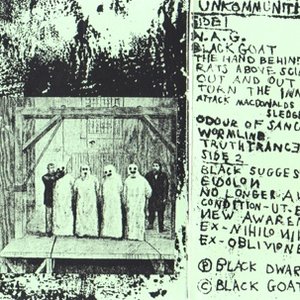 UNKOMMUNITI
SIDE 1
N.A.G.
BLACK GOAT
THE HAND BEHIND
RATS ABOVE
OUT AND OUT
TURN THE
ATTACK MACDONALDS
SLEDGE
ODOUR OF SANC
WORMLINE
TRUTHTRANCE
SIDE 2
BLACK SUGGES
EIDOLON
NO LONGER A
CONDITION-UT.
NEW AWARE
EX-NIHILO NI
EX-OBLIVIONE
Ⓟ BLACK DWAR
© BLACK GOAT